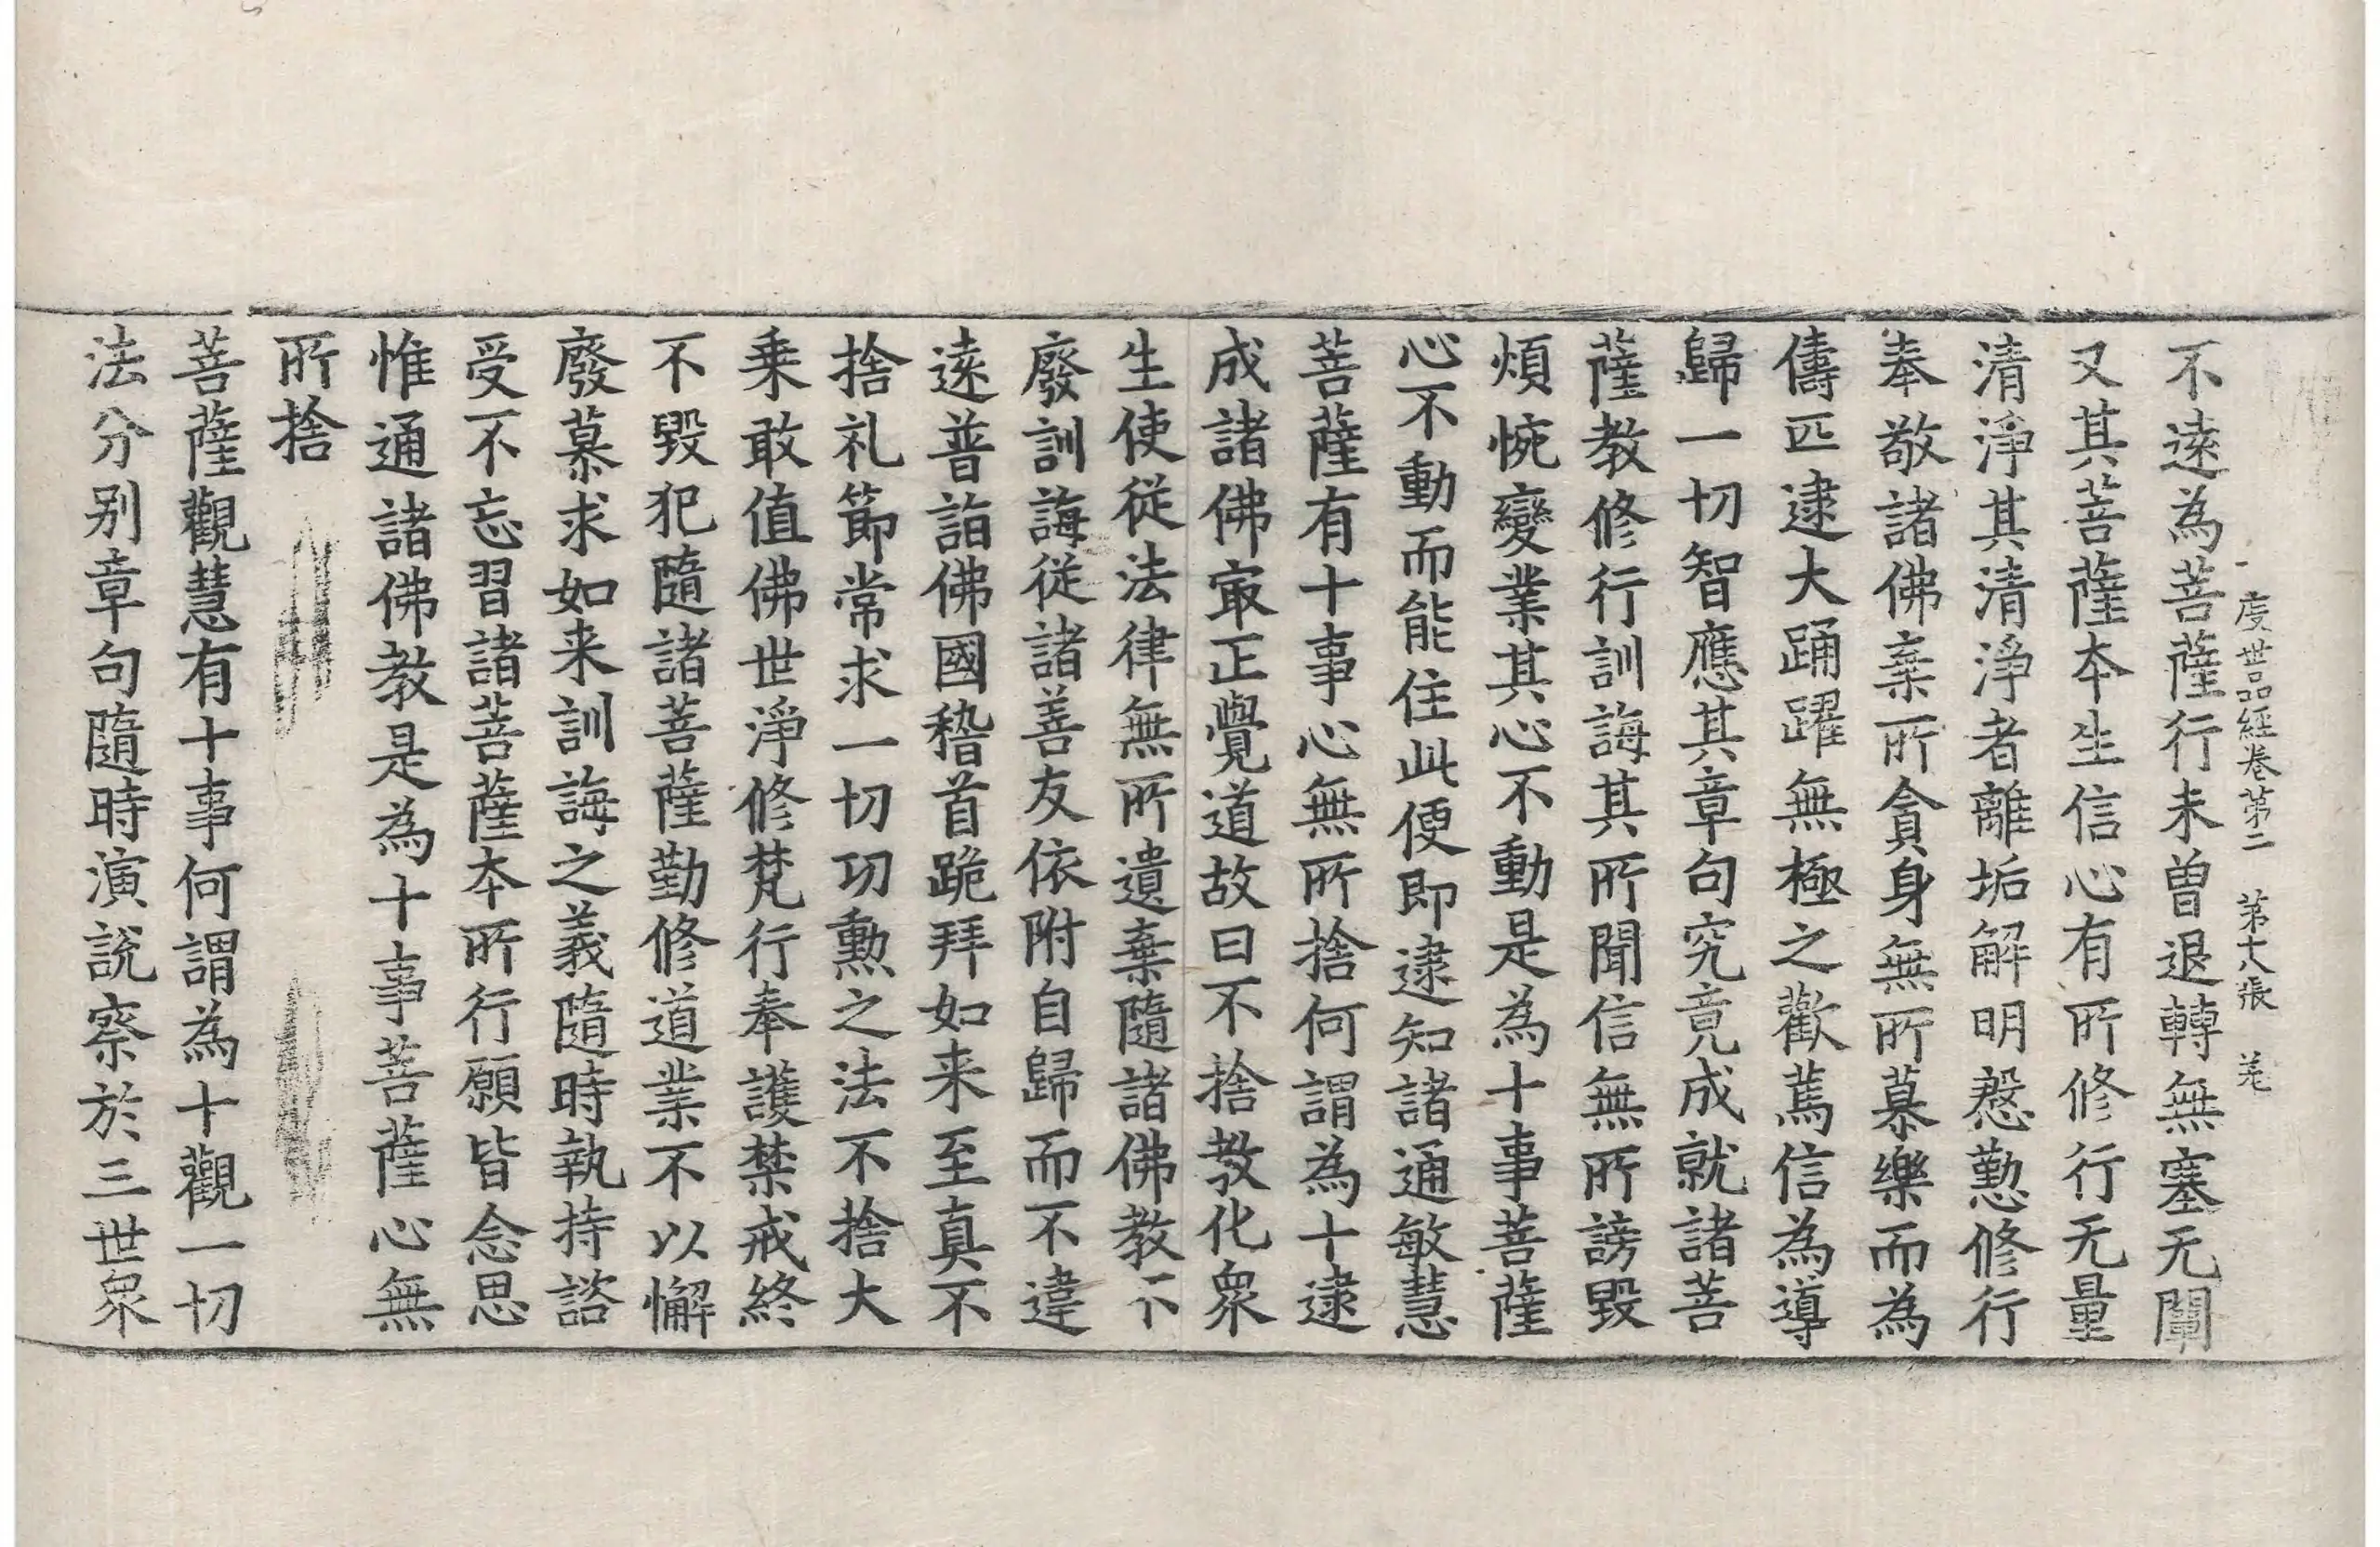 度世品經卷第二 第十八張 羌
不遠為菩薩行未曽退轉無塞无闡
又其菩薩夲生信心有所修行无量
清淨其清淨者離垢解明慇懃修行
奉敬諸佛棄所貪身無所慕樂而為
儔匹逮大踊躍無極之歡篤信為導
歸一切智應其章句究竟成就諸菩
薩教修行訓誨其所聞信無所謗毀
煩惋變業其心不動是為十事菩薩
心不動而能住此便即逮知諸通敏慧
菩薩有十事心無所捨何謂為十逮
成諸佛㝡正覺道故曰不捨教化衆
生使從法律無所遺棄隨諸佛教不
廢訓誨從諸善友依附自歸而不違
遠普詣佛國稽首跪拜如来至真不
捨礼節常求一切功勲之法不捨大
乗敢值佛世淨修梵行奉護禁戒終
不毀犯隨諸菩薩勤修道業不以懈
廢慕求如来訓誨之義隨時執持諮
受不忘習諸菩薩夲所行願皆念思
惟通諸佛教是為十事菩薩心無
所捨
菩薩觀慧有十事何謂為十觀一切
法分別章句隨時演說察於三世衆